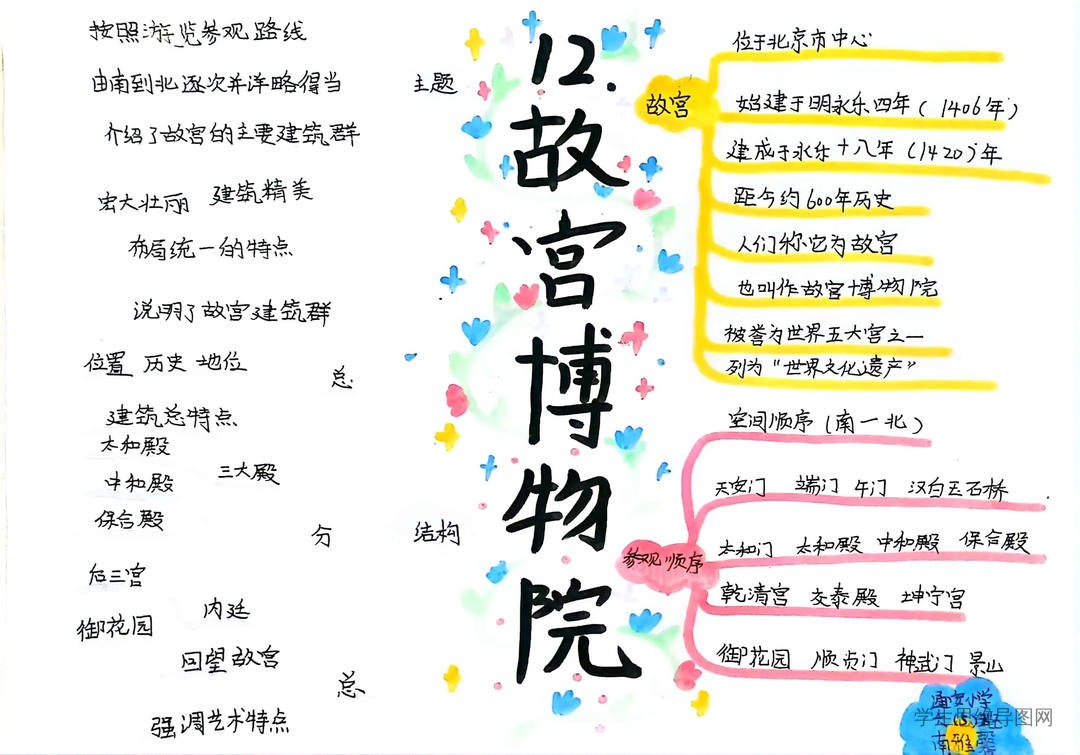 12.故宫博物院
主题
按照游览参观路线
由南到北逐次并详略得当
介绍了故宫的主要建筑群
宏大壮丽 建筑精美
布局统一的特点
说明了故宫建筑群
结构
总
位置 历史 地位
建筑总特点
分
三大殿
太和殿
中和殿
保合殿
内廷
后三宫
御花园
总
回望故宫
强调艺术特点
故宫
位于北京市中心
始建于明永乐四年(1406年)
建成于永乐十八年(1420)年
距今约600年历史
人们称它为故宫
也叫作故宫博物院
被誉为世界五大宫之一
列为“世界文化遗产”
参观顺序
空间顺序(南一北)
天安门 端门 午门 汉白玉石桥
太和门 太和殿 中和殿 保合殿
乾清宫 交泰殿 坤宁宫
御花园 顺贞门 神武门 景山
学生思维导图网